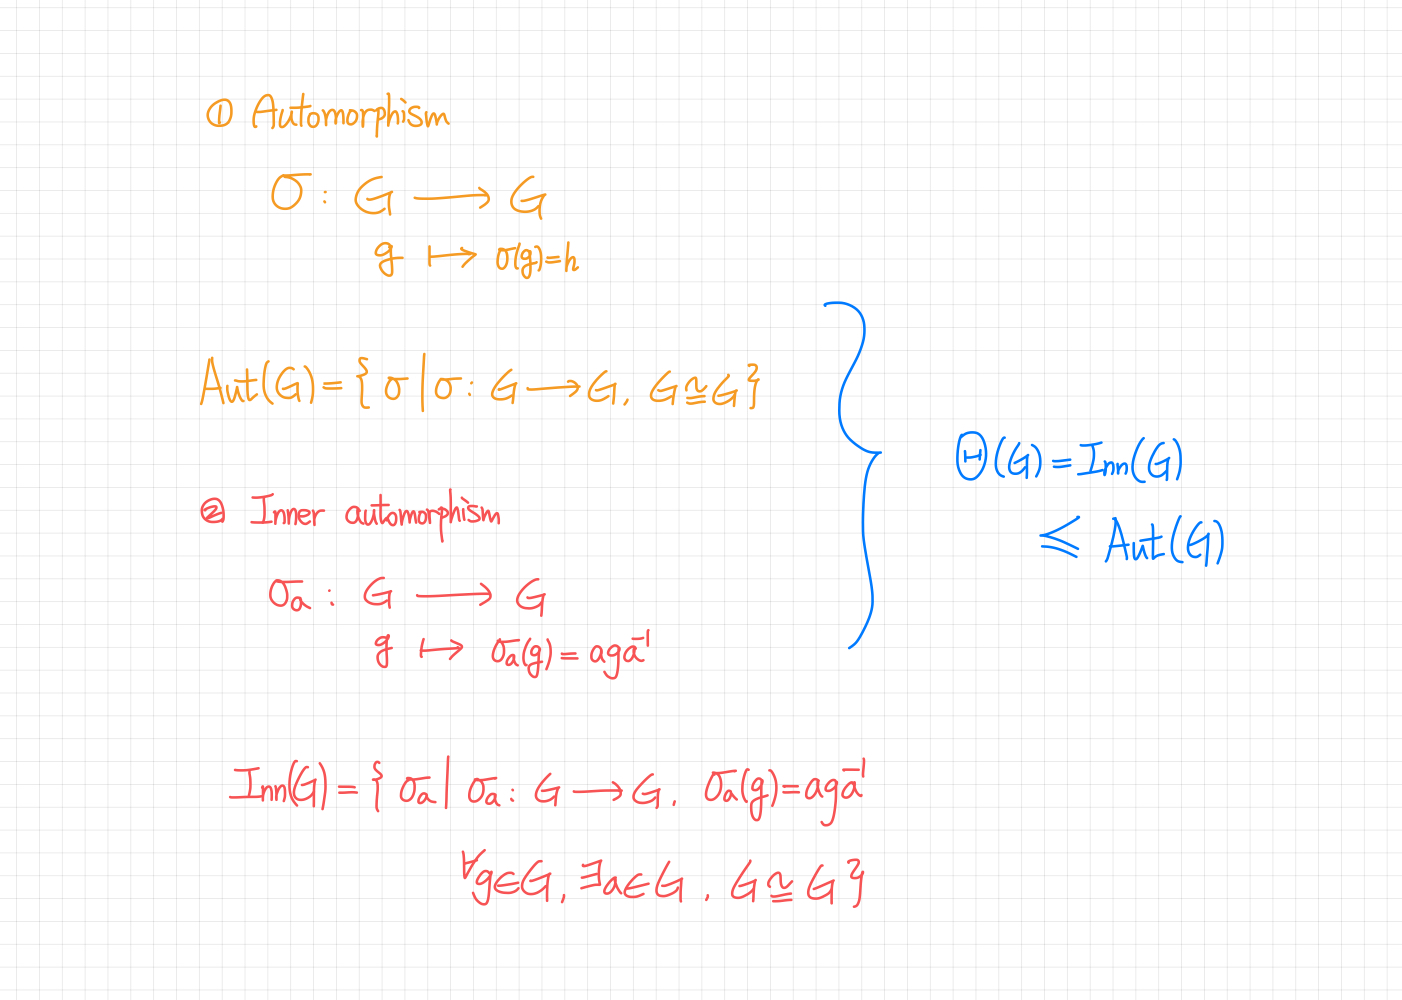 ① Automorphism
σ : G ⟶ G
g ⟼ σ(g)=h
Aut(G)={ σ | σ : G ⟶ G, G≅G }
② Inner automorphism
σₐ : G ⟶ G
g ⟼ σₐ(g) = aga⁻¹
Inn(G)={ σₐ | σₐ : G ⟶ G, σₐ(g)=aga⁻¹
∀g∈G, ∃a∈G, G≅G }
Θ(G)=Inn(G)
⩽ Aut(G)